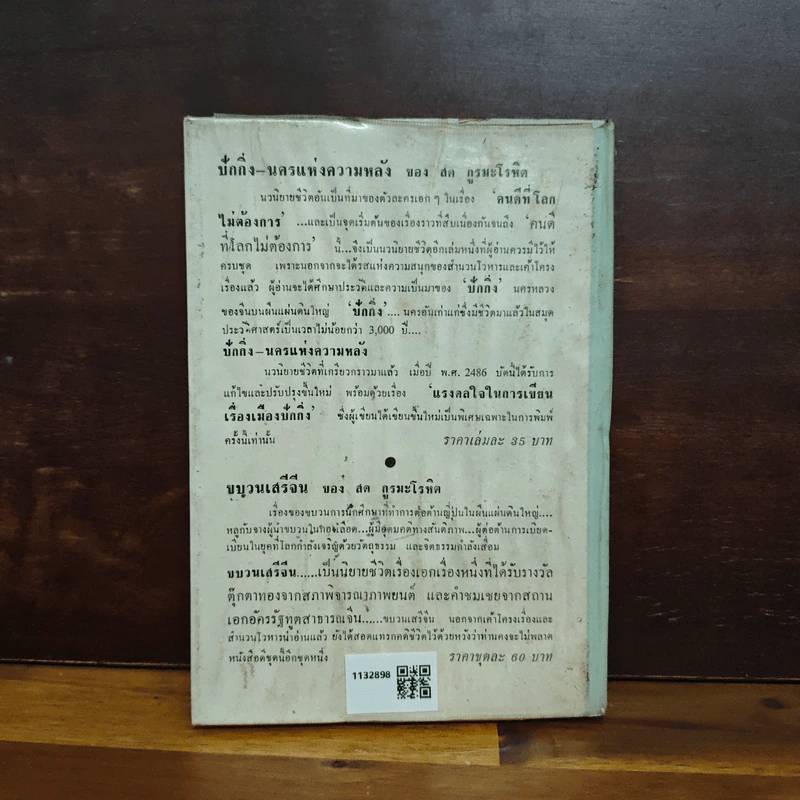 ปักกิ่ง–นครแห่งความหลัง ของ สด กูรมะโรหิต
นวนิยายชีวิตอันเป็นที่มาของตัวละครเอก ๆ ในเรื่อง 'คนดีที่โลก
ไม่ต้องการ' ...และเป็นจุดเริ่มต้นของเรื่องราวที่สืบเนื่องกันจนถึง 'คนดี
ที่โลกไม่ต้องการ' นี้...จึงเป็นนวนิยายชีวิตอีกเล่มหนึ่งที่ผู้อ่านควรมีไว้ให้
ครบชุด เพราะนอกจากจะได้รสแห่งความสนุกของสำนวนโวหารและเค้าโครง
เรื่องแล้ว ผู้อ่านจะได้ศึกษาประวัติและความเป็นมาของ 'ปักกิ่ง' นครหลวง
ของจีนบนผืนแผ่นดินใหญ่ 'ปักกิ่ง'.... นครอันเก่าแก่ซึ่งมีชีวิตมาแล้วในสมุด
ประวัติศาสตร์เป็นเวลาไม่น้อยกว่า 3,000 ปี....
ปักกิ่ง–นครแห่งความหลัง
นวนิยายชีวิตที่เกรียวกราวมาแล้ว เมื่อปี พ.ศ. 2486 บัดนี้ได้รับการ
แก้ไขและปรับปรุงขึ้นใหม่ พร้อมด้วยเรื่อง 'แรงดลใจในการเขียน
เรื่องเมืองปักกิ่ง' ซึ่งผู้เขียนได้เขียนขึ้นใหม่เป็นพิเศษเฉพาะในการพิมพ์
ครั้งนี้เท่านั้น ราคาเล่มละ 35 บาท
ขบวนเสรีจีน ของ สด กูรมะโรหิต
เรื่องของขบวนการนักศึกษาที่ทำการต่อต้านญี่ปุ่นในผืนแผ่นดินใหญ่....
หลูกับจางผู้นำขบวนในกองเลือด...ผู้มีอุดมคติทางสันติภาพ...ผู้ต่อต้านการเบียด-
เบียนในยุคที่โลกกำลังเจริญด้วยวัตถุธรรม และจิตธรรมกำลังเสื่อม
ขบวนเสรีจีน......เป็นนิยายชีวิตเรื่องเอกเรื่องหนึ่งที่ได้รับรางวัล
ตุ๊กตาทองจากสภาพิจารณาภาพยนต์ และคำชมเชยจากสถาน
เอกอัครรัฐทูตสาธารณจีน......ขบวนเสรีจีน นอกจากเค้าโครงเรื่องและ
สำนวนโวหารน่าอ่านแล้ว ยังได้สอดแทรกคติชีวิตไว้ด้วยหวังว่าท่านคงจะไม่พลาด
หนังสือดีชุดนี้อีกชุดหนึ่ง ราคาชุดละ 60 บาท
1132898